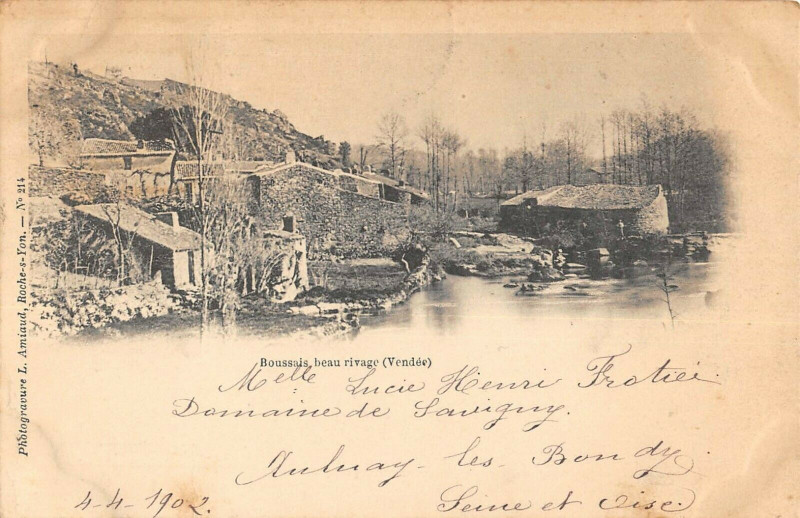 Photogravure L. Amiaud, Roche-s-Yon. — Nº 214
Boussais, beau rivage (Vendée)
Melle Lucie Henri Frotiée
Domaine de Savigny.
Aulnay-les-Bondy
4-4-1902.
Seine et Oise